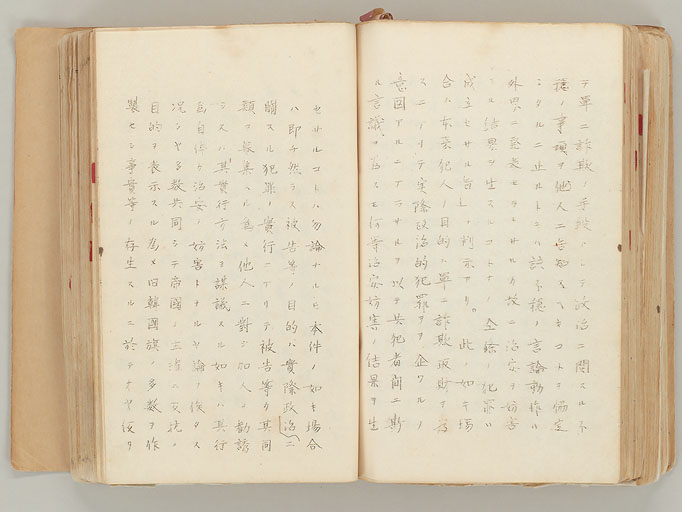 テ單ニ詐欺ノ手段トシテ政治ニ關スル不
穩ノ事項ヲ他人ニ告知スヘキコトヲ協定
シタルニ止ルトキハ該不穩ノ言論動作ハ
外界ニ發表セラレサルカ故ニ治安ヲ妨害
スル結果ヲ生スルコトナク全然ノ犯罪ハ
成立セサル旨ノ判示アリ。此ノ如キ場
合ハ本來犯人ノ目的ハ單ニ詐欺取財ヲ為
スニアリテ實際政治的犯罪ヲ企ツルノ
意圖アルニアラサルヲ以テ共犯者間ニ斯
ル言議ヲ為スモ何等治安妨害ノ結果ヲ生
セサルコトハ勿論ナルモ本件ノ如キ場合
ハ即チ然ラス被告等ノ目的ハ實際政治ニ
關スル犯罪ノ實行ニアリテ被告等カ其同
類ヲ募集スル為メ他人ニ對シ加入ヲ勸誘
シ又ハ其實行方法ヲ謀議スル如キハ其行
為自体カ治安ノ妨害トナルヤ論ヲ俟タス
況ンヤ多数共同シテ帝國ノ主權ニ反抗ノ
目的ヲ表示スル為メ旧韓國旗ノ多数ヲ作
製セシ事實等ノ存在スルニ於テオヤ仮リ